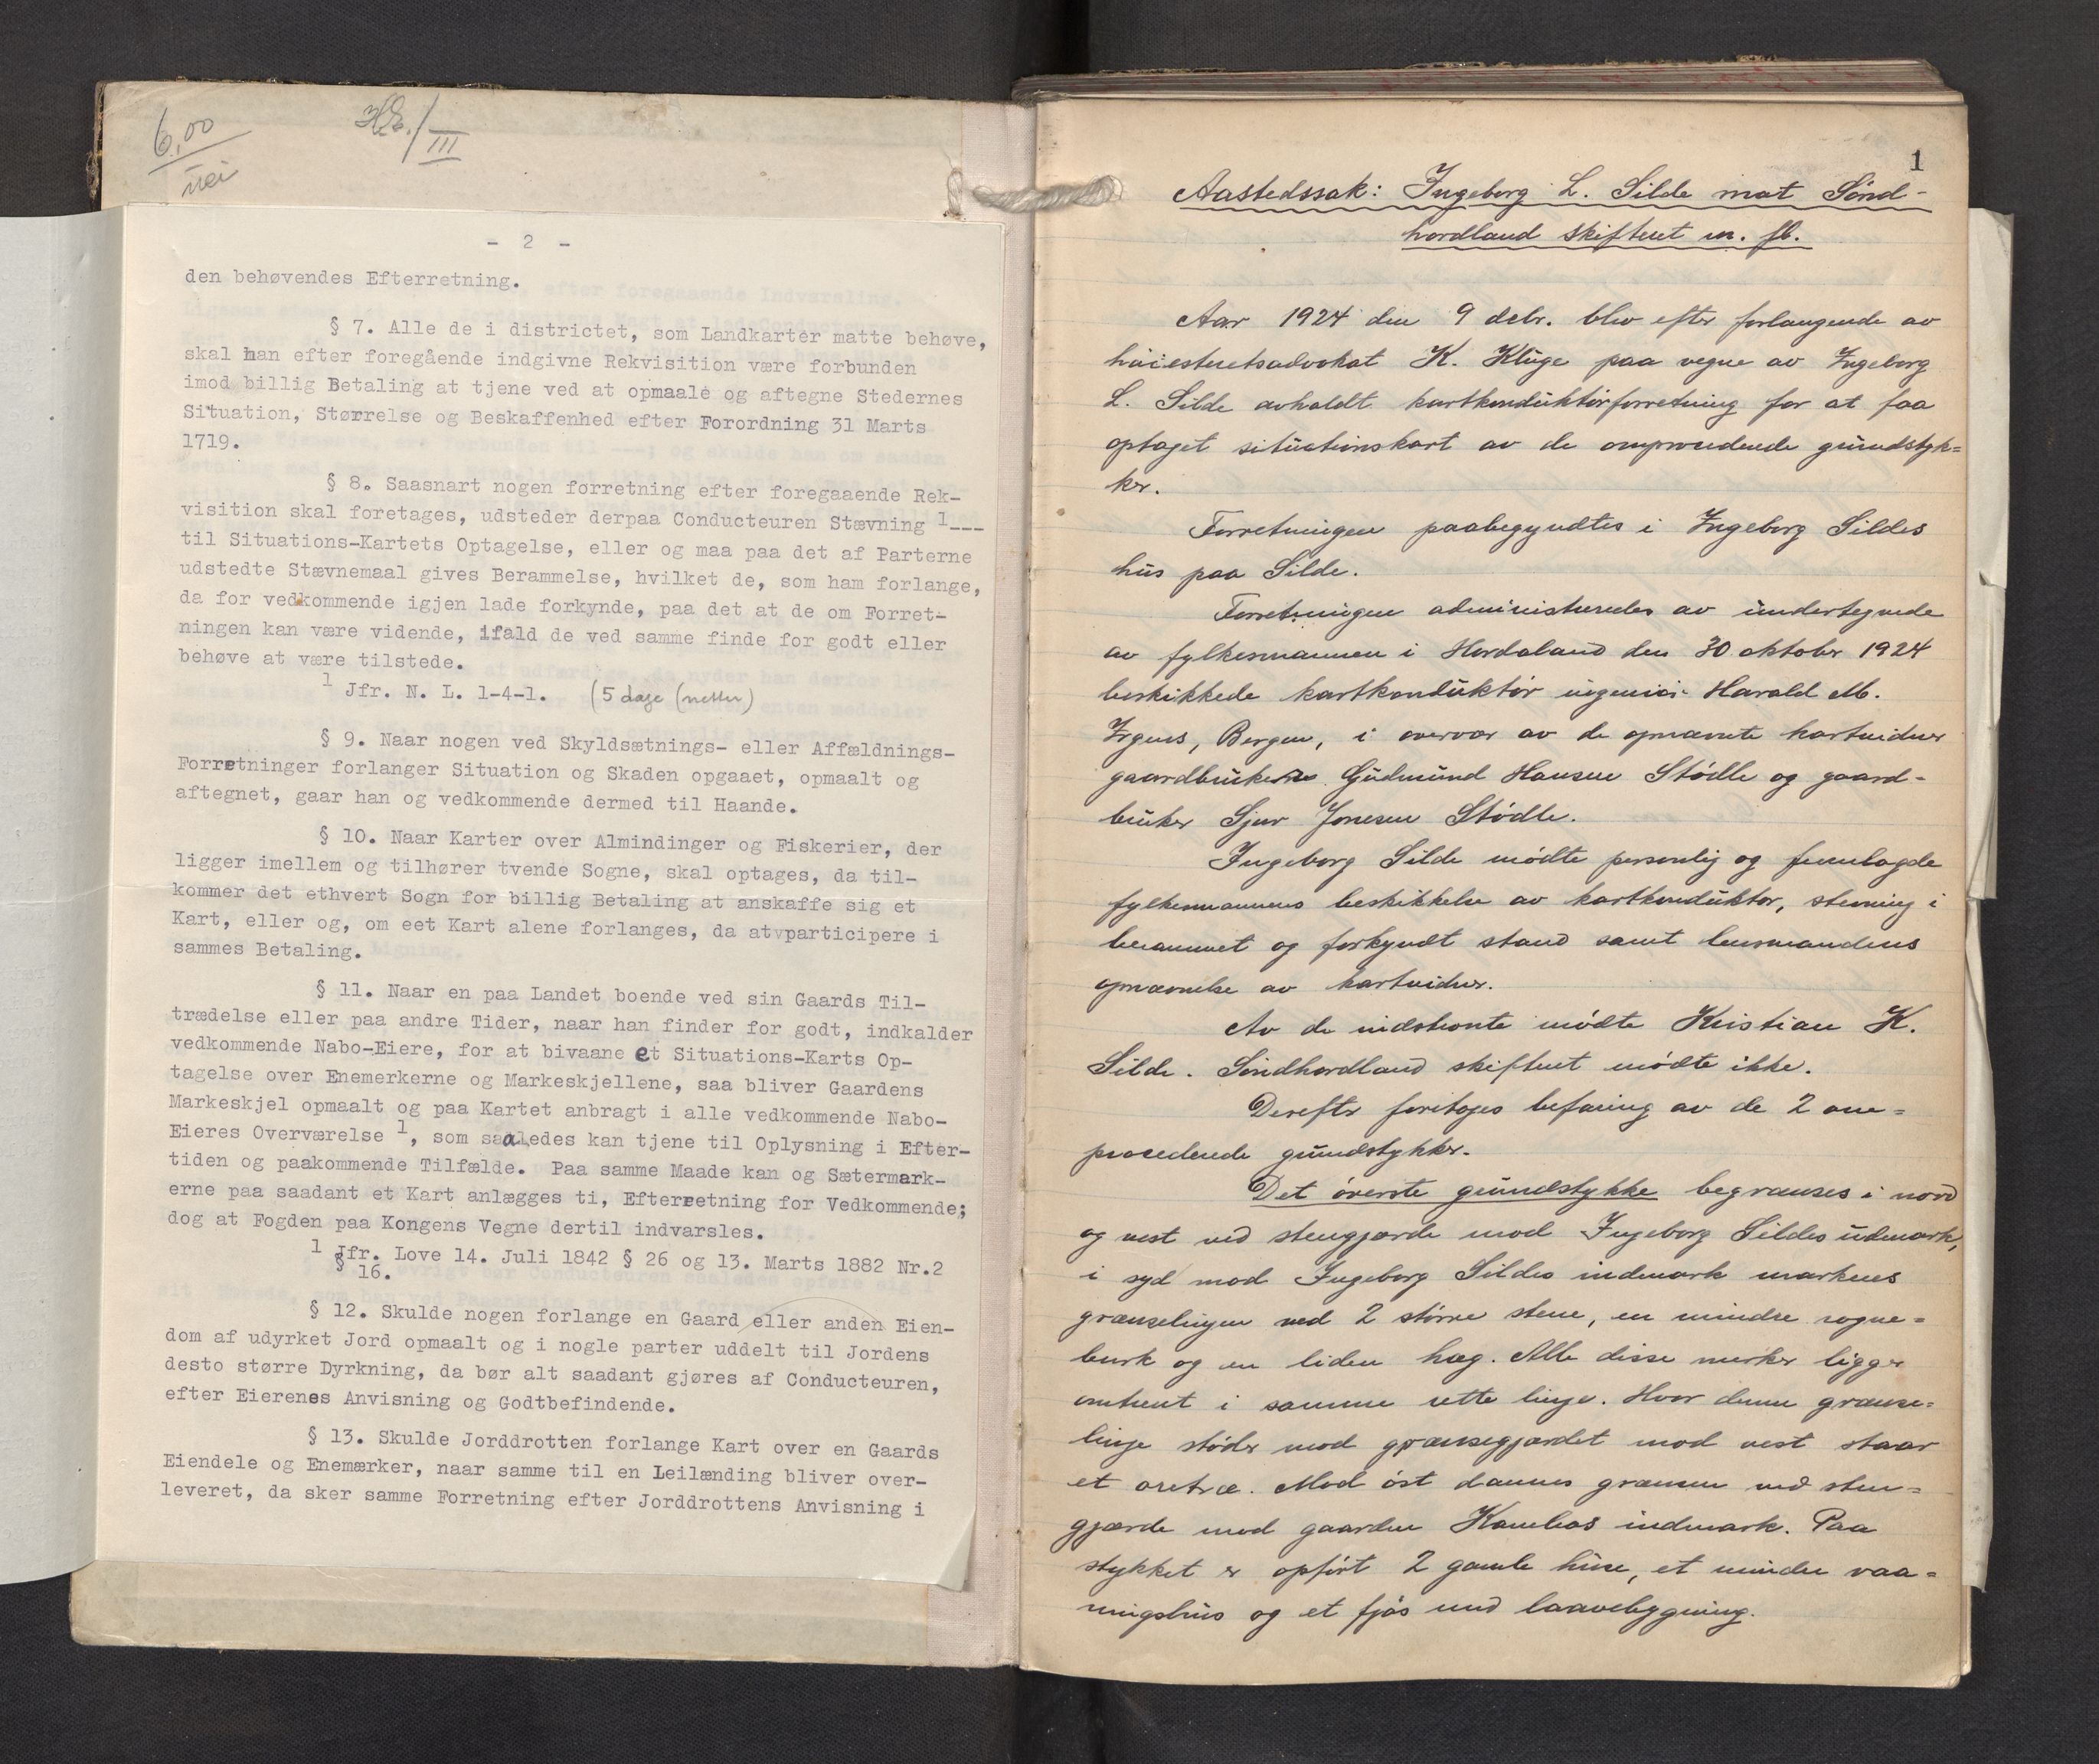 6,00
nei
H.E./III
- 2 -
den behøvendes Efterretning.
§ 7. Alle de i districtet, som Landkarter matte behøve,
skal han efter foregående indgivne Rekvisition være forbunden
imod billig Betaling at tjene ved at opmaale og aftegne Stedernes
Situation, Størrelse og Beskaffenhed efter Forordning 31 Marts
1719.
§ 8. Saasnart nogen forretning efter foregaaende Rek-
visition skal foretages, udsteder derpaa Conducteuren Stævning 1___
til Situations-Kartets Optagelse, eller og maa paa det af Parterne
udstedte Stævnemaal gives Berammelse, hvilket de, som ham forlange,
da for vedkommende igjen lade forkynde, paa det at de om Forret-
ningen kan være vidende, ifald de ved samme finde for godt eller
behøve at være tilstede.
1 Jfr. N. L. 1-4-1. (5 dage (netter)
§ 9. Naar nogen ved Skyldsætnings- eller Affældnings-
Forretninger forlanger Situation og Skaden opgaaet, opmaalt og
aftegnet, gaar han og vedkommende dermed til Haande.
§ 10. Naar Karter over Almindinger og Fiskerier, der
ligger imellem og tilhører tvende Sogne, skal optages, da til-
kommer det ethvert Sogn for billig Betaling at anskaffe sig et
Kart, eller og, om eet Kart alene forlanges, da atvparticipere i
sammes Betaling.
§ 11. Naar en paa Landet boende ved sin Gaards Til-
trædelse eller paa andre Tider, naar han finder for godt, indkalder
vedkommende Nabo-Eiere, for at bivaane et Situations-Karts Op-
tagelse over Enemerkerne og Markeskjellene, saa bliver Gaardens
Markeskjel opmaalt og paa Kartet anbragt i alle vedkommende Nabo-
Eieres Overværelse 1, som saaledes kan tjene til Oplysning i Efter-
tiden og paakommende Tilfælde. Paa samme Maade kan og Sætermark-
erne paa saadant et Kart anlægges ti, Efterretning for Vedkommende;
dog at Fogden paa Kongens Vegne dertil indvarsles.
1 Jfr. Love 14. Juli 1842 § 26 og 13. Marts 1882 Nr.2
§ 16.
§ 12. Skulde nogen forlange en Gaard eller anden Eien-
dom af udyrket Jord opmaalt og i nogle parter uddelt til Jordens
desto større Dyrkning, da bør alt saadant gjøres af Conducteuren,
efter Eierenes Anvisning og Godtbefindende.
§ 13. Skulde Jorddrotten forlange Kart over en Gaards
Eiendele og Enemærker, naar samme til en Leilænding bliver over-
leveret, da sker samme Forretning efter Jorddrottens Anvisning i
1
Aastedssak: Ingeborg L. Silde mot Sönd-
hordland skifteret m. fl.
Aar 1924 den 9 debr. blev efter forlangende av
höiesteretsadvokat K. Kluge paa vegne av Ingeborg
L. Silde avholdt kartkonduktörforretning for at faa
optaget situationskart av de omprocederede grundstyk=
ker.
Forretningen paabegyndtes i Ingeborg Sildes
hus paa Silde.
Forretningen administreredes av undertegnede
av fylkesmannen i Hordaland den 30 oktober 1924
beskikkede kartkonduktör ingeniör Harald M.
Irgens, Bergen, i overvær av de opnævnte kartvidner
gaardbrukerne Gudmund Hansen Stödle og gaard-
bruker Sjur Jonesen Stödle.
Ingeborg Silde mödte personlig og fremlagde
fylkesmannens beskikkelse av kartkonduktör, stevning i
berammet og forkyndt stand samt lensmandens
opnævnelse av kartvidner.
Av de indstevnte mödte Kristian K.
Silde. Söndhordland skifteret mödte ikke.
Derefter foretoges befaring av de 2 om=
procederede grundstykker.
Det överste grundstykke begrænses i nord
og vest ved stengjærde mod Ingeborg Sildes udmark,
i syd mod Ingeborg Sildes indmark markeres
grænselinjen ved 2 större stene, en mindre rogne=
busk og en liden hæg. Alle disse merker ligger
omtrent i samme rette linje. Hvor denne grænse=
linje stöder mod grænsegjærdet mod vest staar
et oretræ. Mod öst dannes grænsen ved sten=
gjærde mod gaarden Kambos indmark. Paa
stykket er opfört 2 gamle huse, et mindre vaa=
ningshus og et fjös med laavebygning.